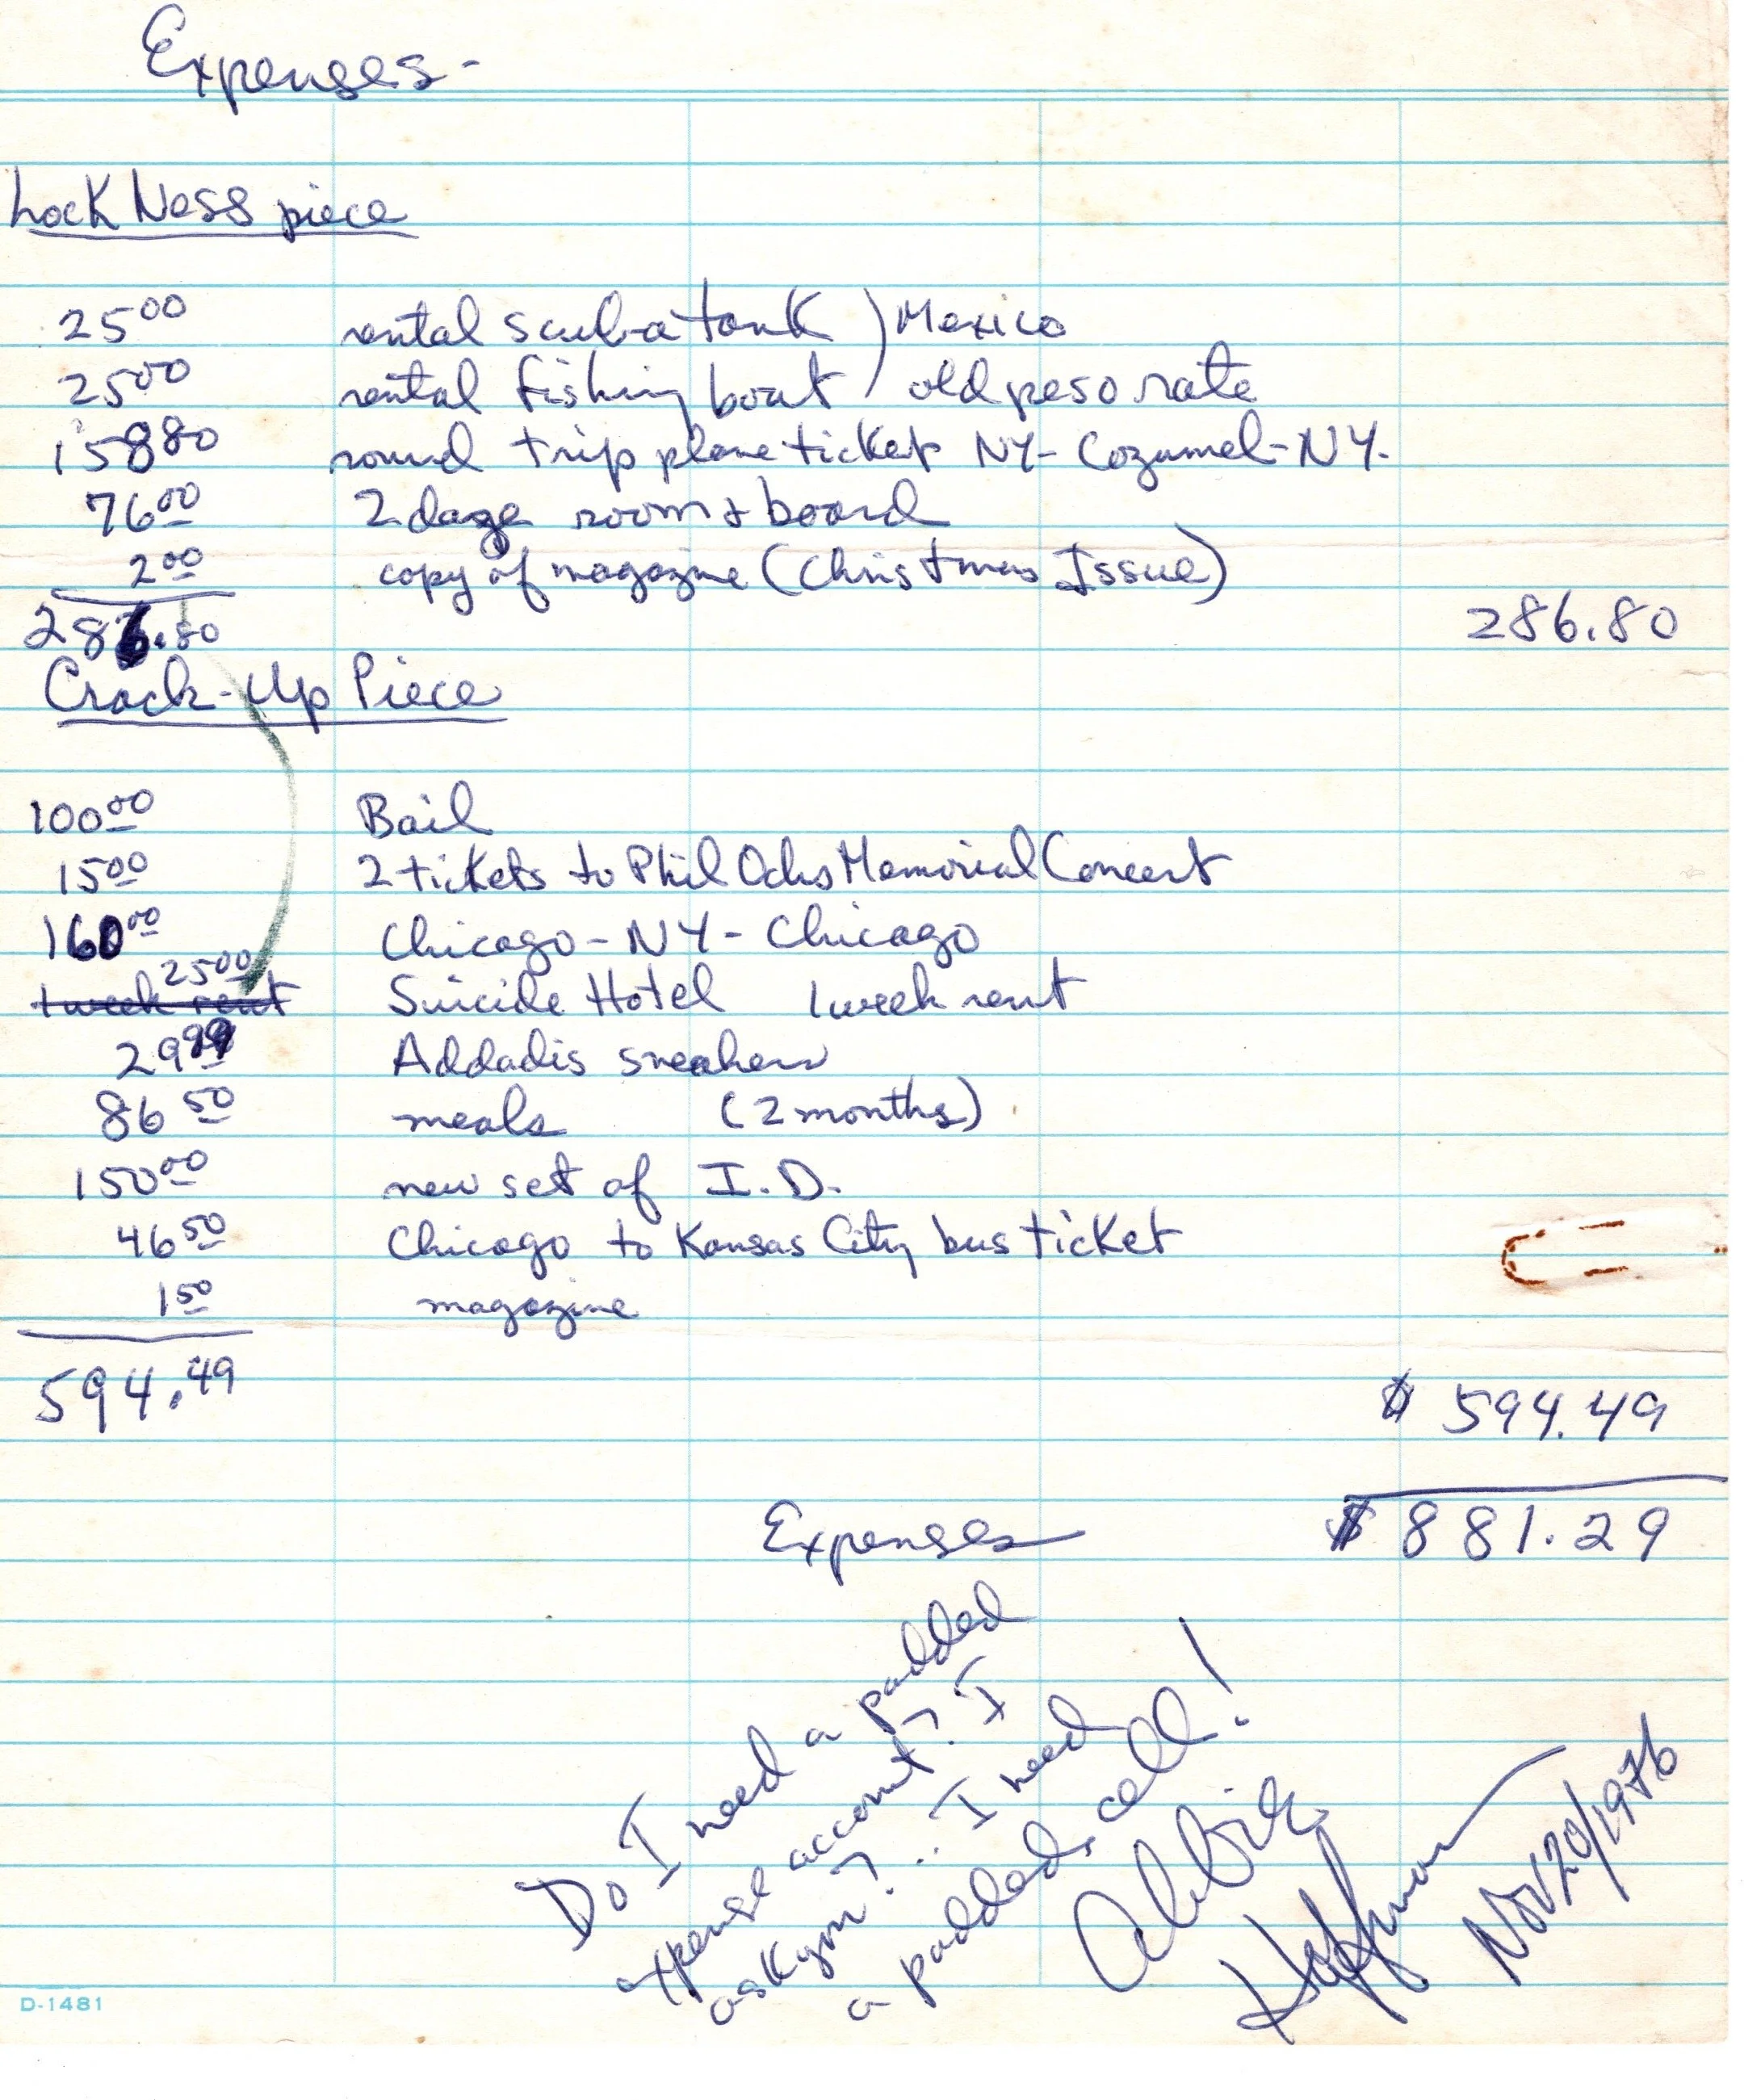 Expenses-
Lock Ness piece
25 00 rental scuba tank ) Mexico
25 00 rental fishing boat ) old peso rate
158 80 round trip plane ticket NY- Cozumel-NY.
76 00 2 days room & board
2 00 copy of magazine (Christmas Issue)
286.80 286.80
Crack-Up Piece
100 00 Bail
15 00 2 tickets to Phil Ochs Memorial Concert
160 00 Chicago - NY - Chicago
25 00
1 week rent Suicide Hotel 1 week rent
29 99 Addadis sneakers
86 50 meals (2 months)
150 00 new set of I.D.
46 50 Chicago to Kansas City bus ticket
1 50 magazine
594.49
$ 594.49
Expenses $ 881.29
Do I need a padded
expense account? I
ask you? ... I need
a padded cell!
Abbie
Hoffman
Nov 20/1976
D-1481